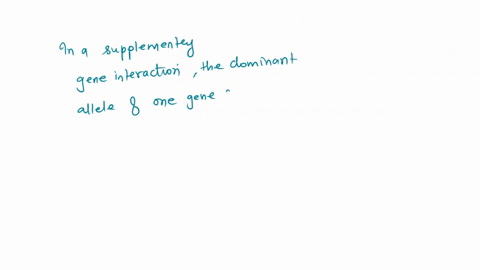 In a supplementey
gene interaction, the dominant
allele of one gene